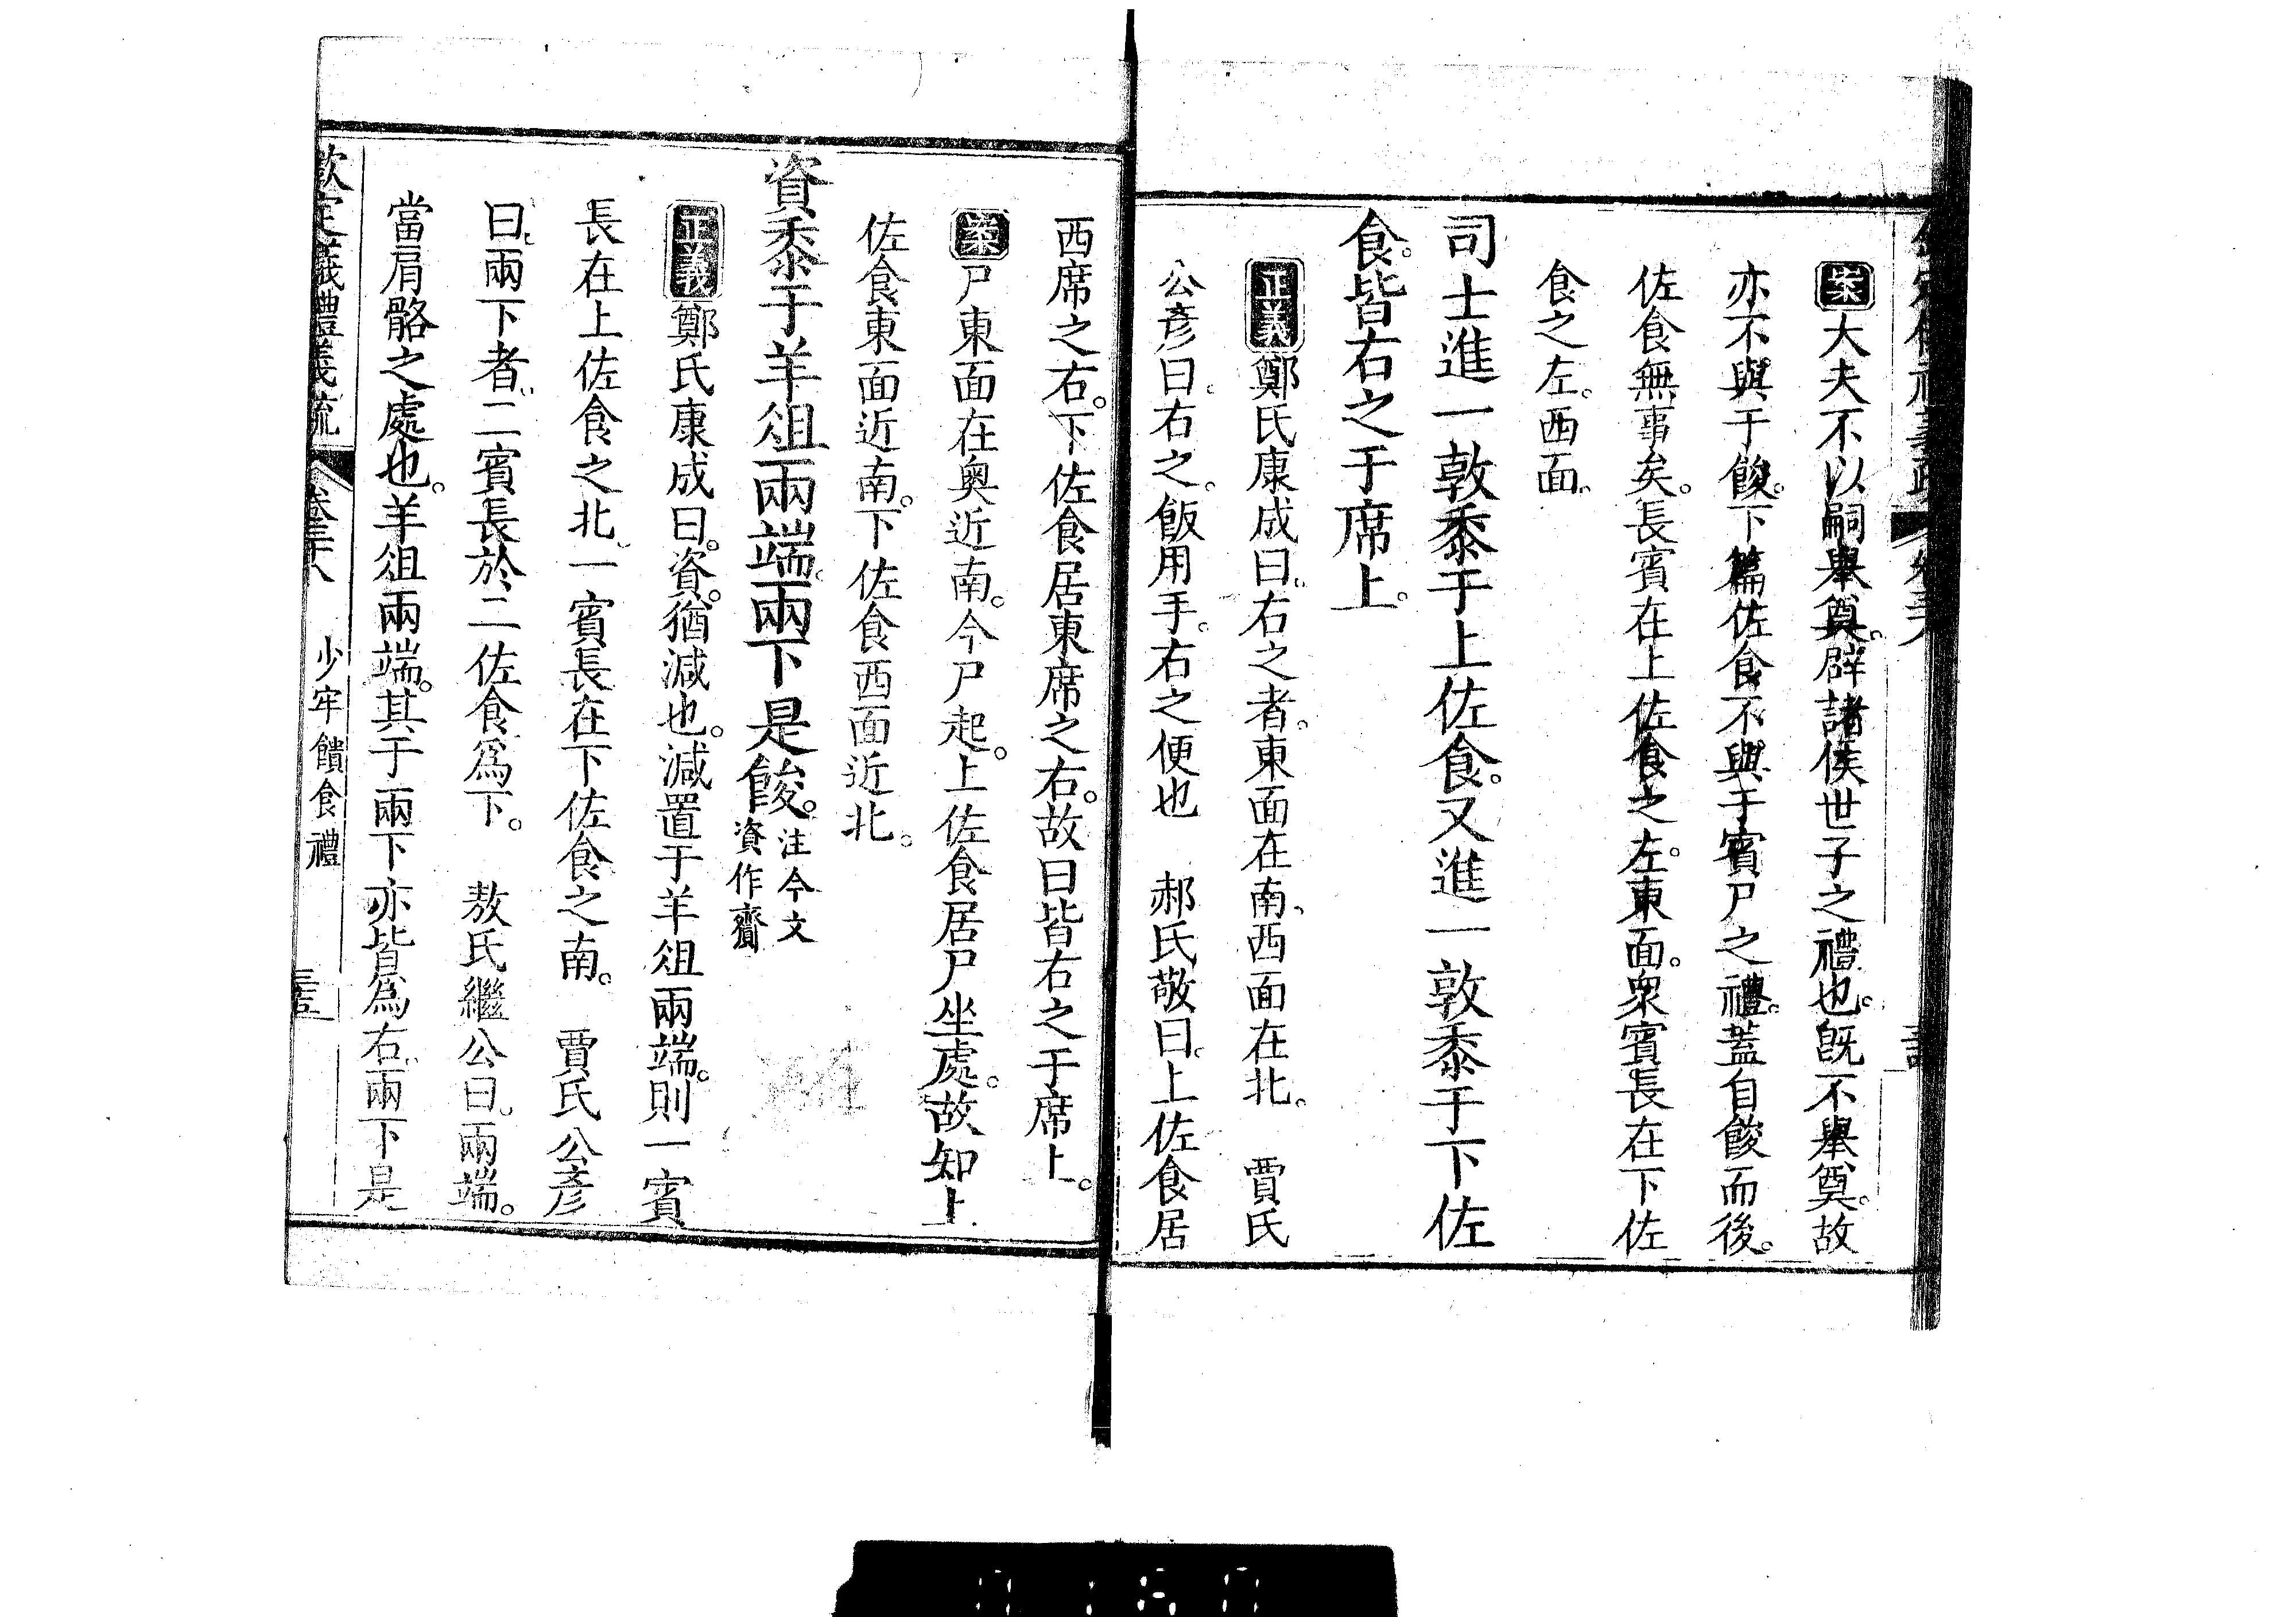 案大夫不以嗣舉奠。辟諸侯世子之禮也。旣不舉奠。故
亦不與于餕。下篇佐食不與于賓尸之禮。蓋自餕而後。
佐食無事矣。長賓在上佐食之左。東面。衆賓長在下佐
食之左。西面。
司士進一敦黍于上佐食。又進一敦黍于下佐
食。皆右之于席上。
正義鄭氏康成曰。右之者。東面在南。西面在北。 賈氏
公彥曰。右之。飯用手。右之便也 郝氏敬曰。上佐食居
西席之右。下佐食居東席之右。故曰皆右之于席上。
案尸東面在奧近南。今尸起。上佐食居尸坐處。故知上
佐食東面近南。下佐食西面近北。
資黍于羊俎兩端。兩下是餕。注今文
資作齎
正義鄭氏康成曰。資。猶減也。減置于羊俎兩端。則一賓
長在上佐食之北。一賓長在下佐食之南。 賈氏公彥
曰。兩下者。二賓長於二佐食爲下。 敖氏繼公曰。兩端。
當肩骼之處也。羊俎兩端。其于兩下亦皆爲右。兩下是
欽定儀禮義疏 卷三十八 少牢饋食禮